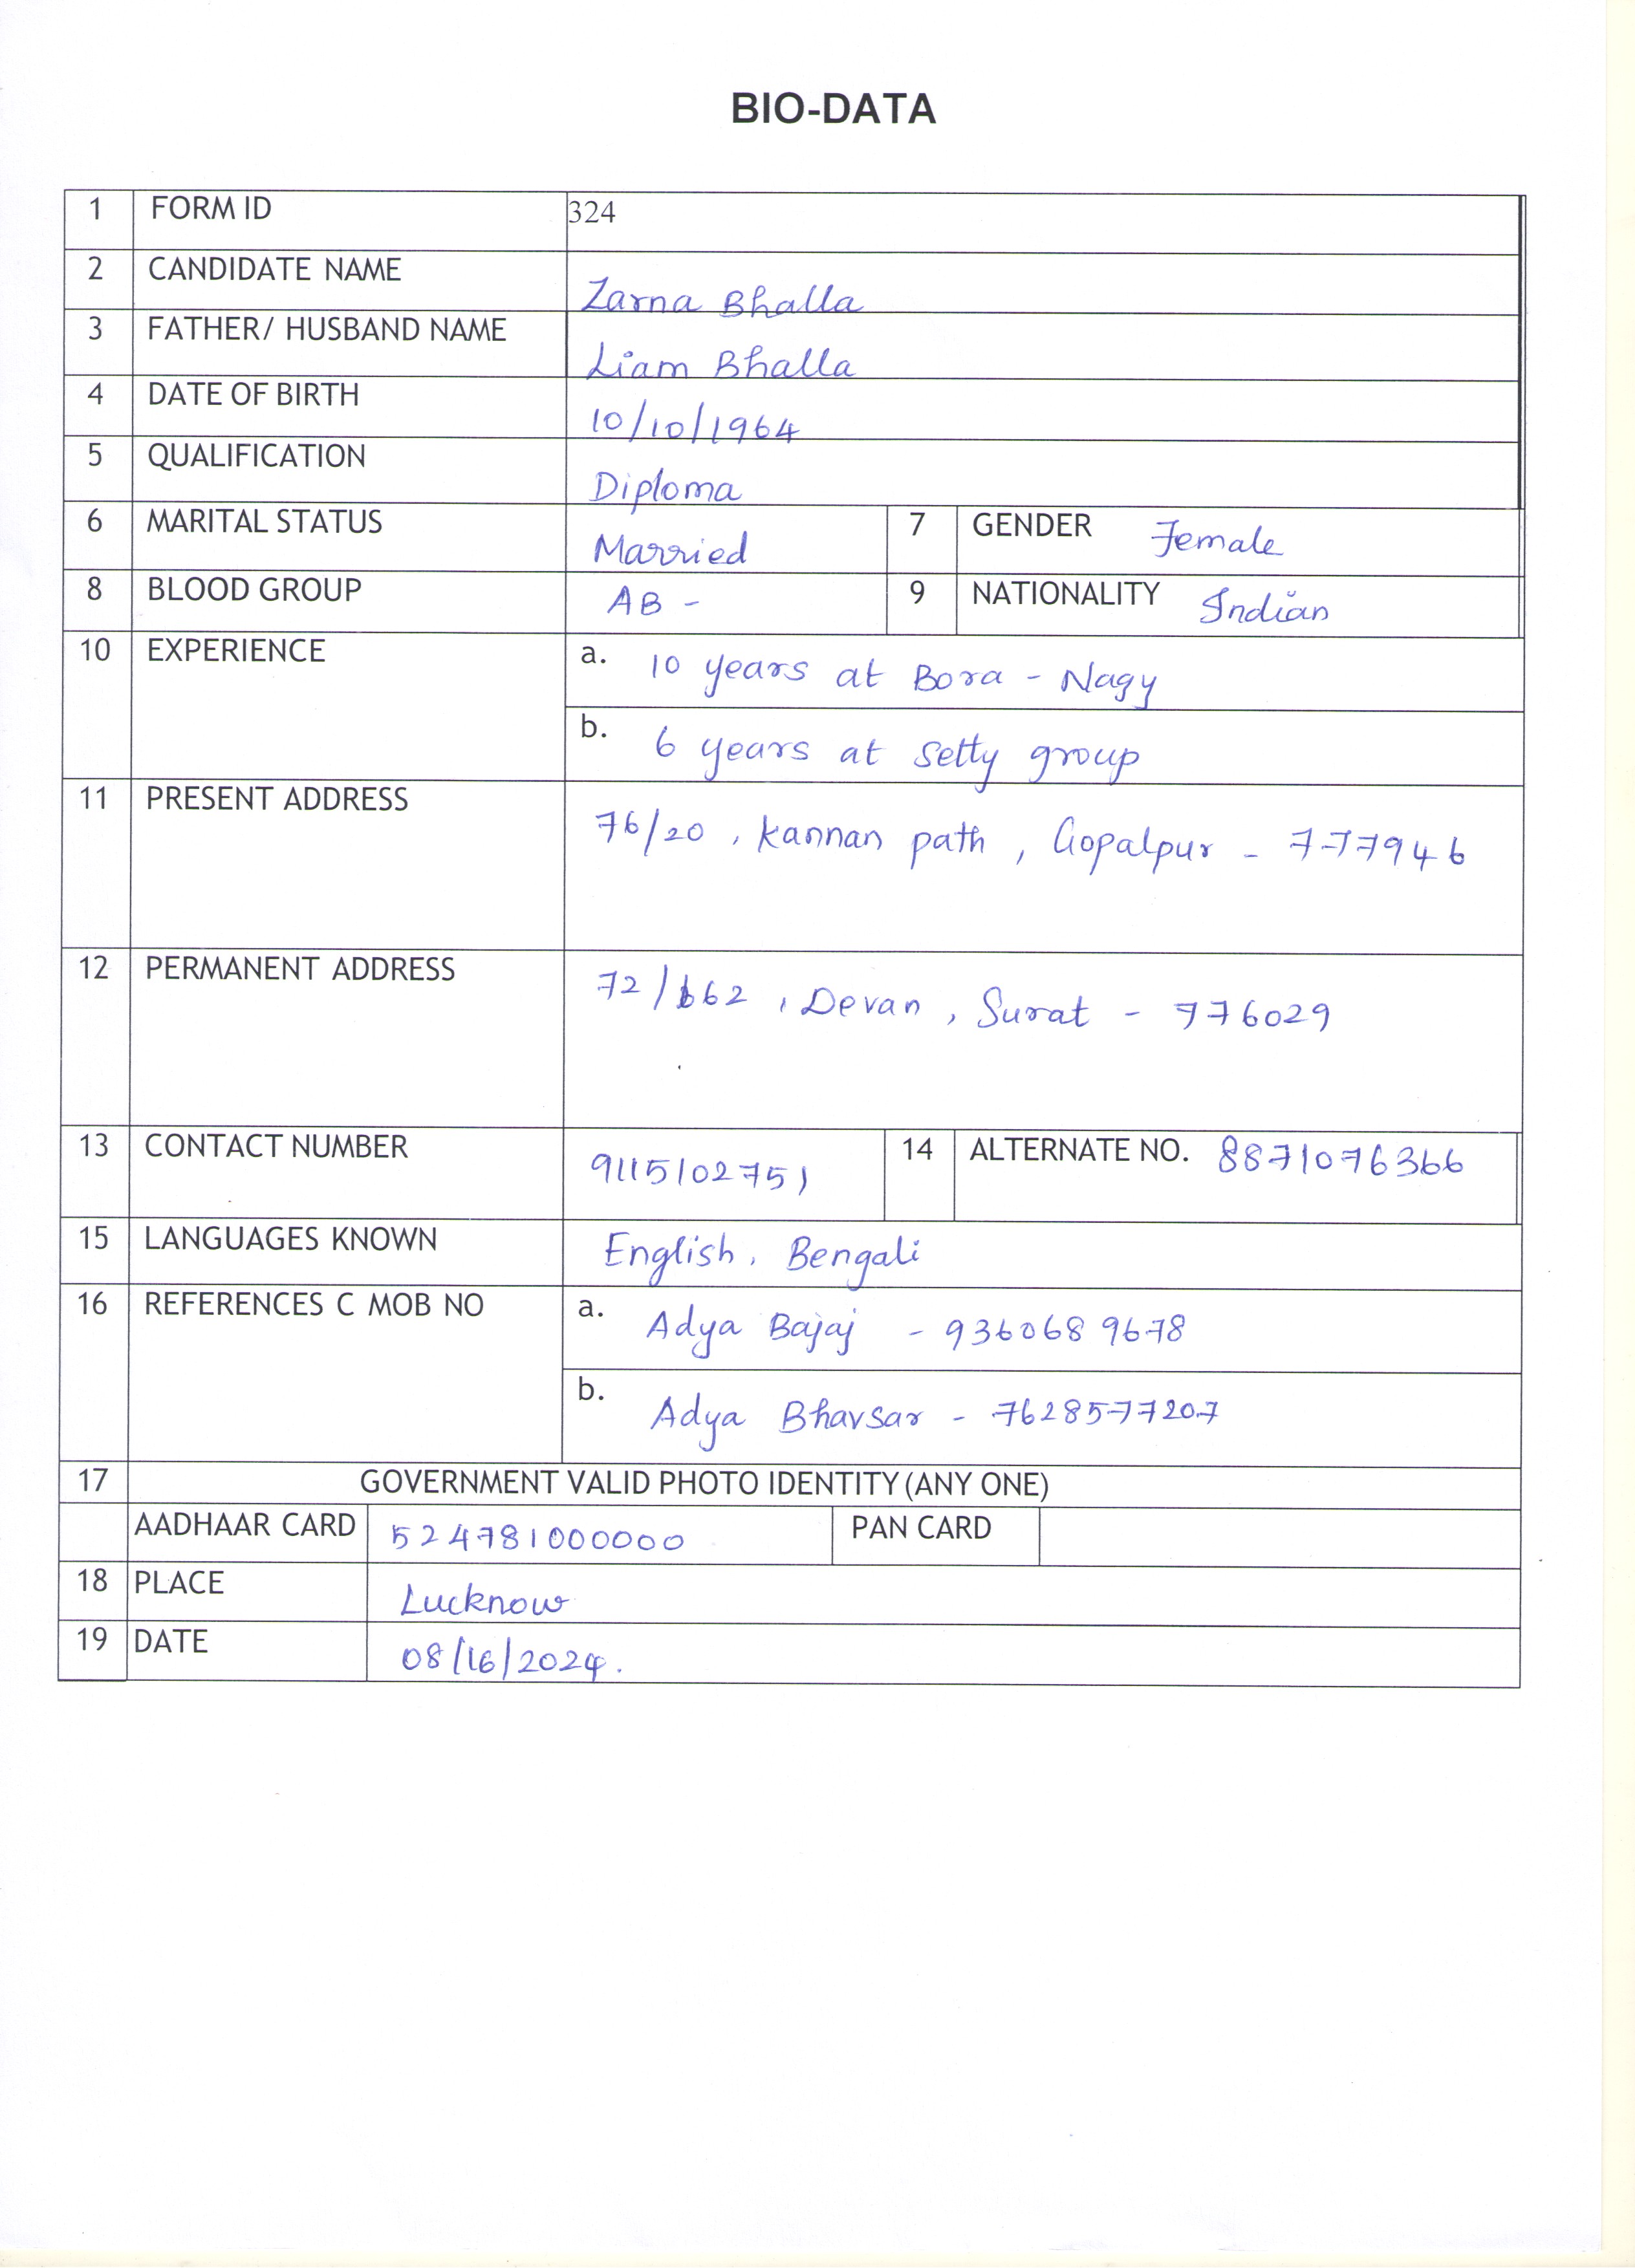 BIO-DATA
1 FORM ID 324
2 CANDIDATE NAME Zarna Bhalla
3 FATHER/ HUSBAND NAME Liam Bhalla
4 DATE OF BIRTH 10/10/1964
5 QUALIFICATION Diploma
6 MARITAL STATUS Married 7 GENDER Female
8 BLOOD GROUP AB - 9 NATIONALITY Indian
10 EXPERIENCE a. 10 years at Bora - Nagy
b. 6 years at Setty group
11 PRESENT ADDRESS 76/20, Kannan path, Gopalpur - 777946
12 PERMANENT ADDRESS 72/662, Devan, Surat - 776029
13 CONTACT NUMBER 9115102751 14 ALTERNATE NO. 8871076366
15 LANGUAGES KNOWN English, Bengali
16 REFERENCES C MOB NO a. Adya Bajaj - 9360689678
b. Adya Bhavsar - 7628577207
17 GOVERNMENT VALID PHOTO IDENTITY (ANY ONE)
AADHAAR CARD 524781000000 PAN CARD
18 PLACE Lucknow
19 DATE 08/16/2024.